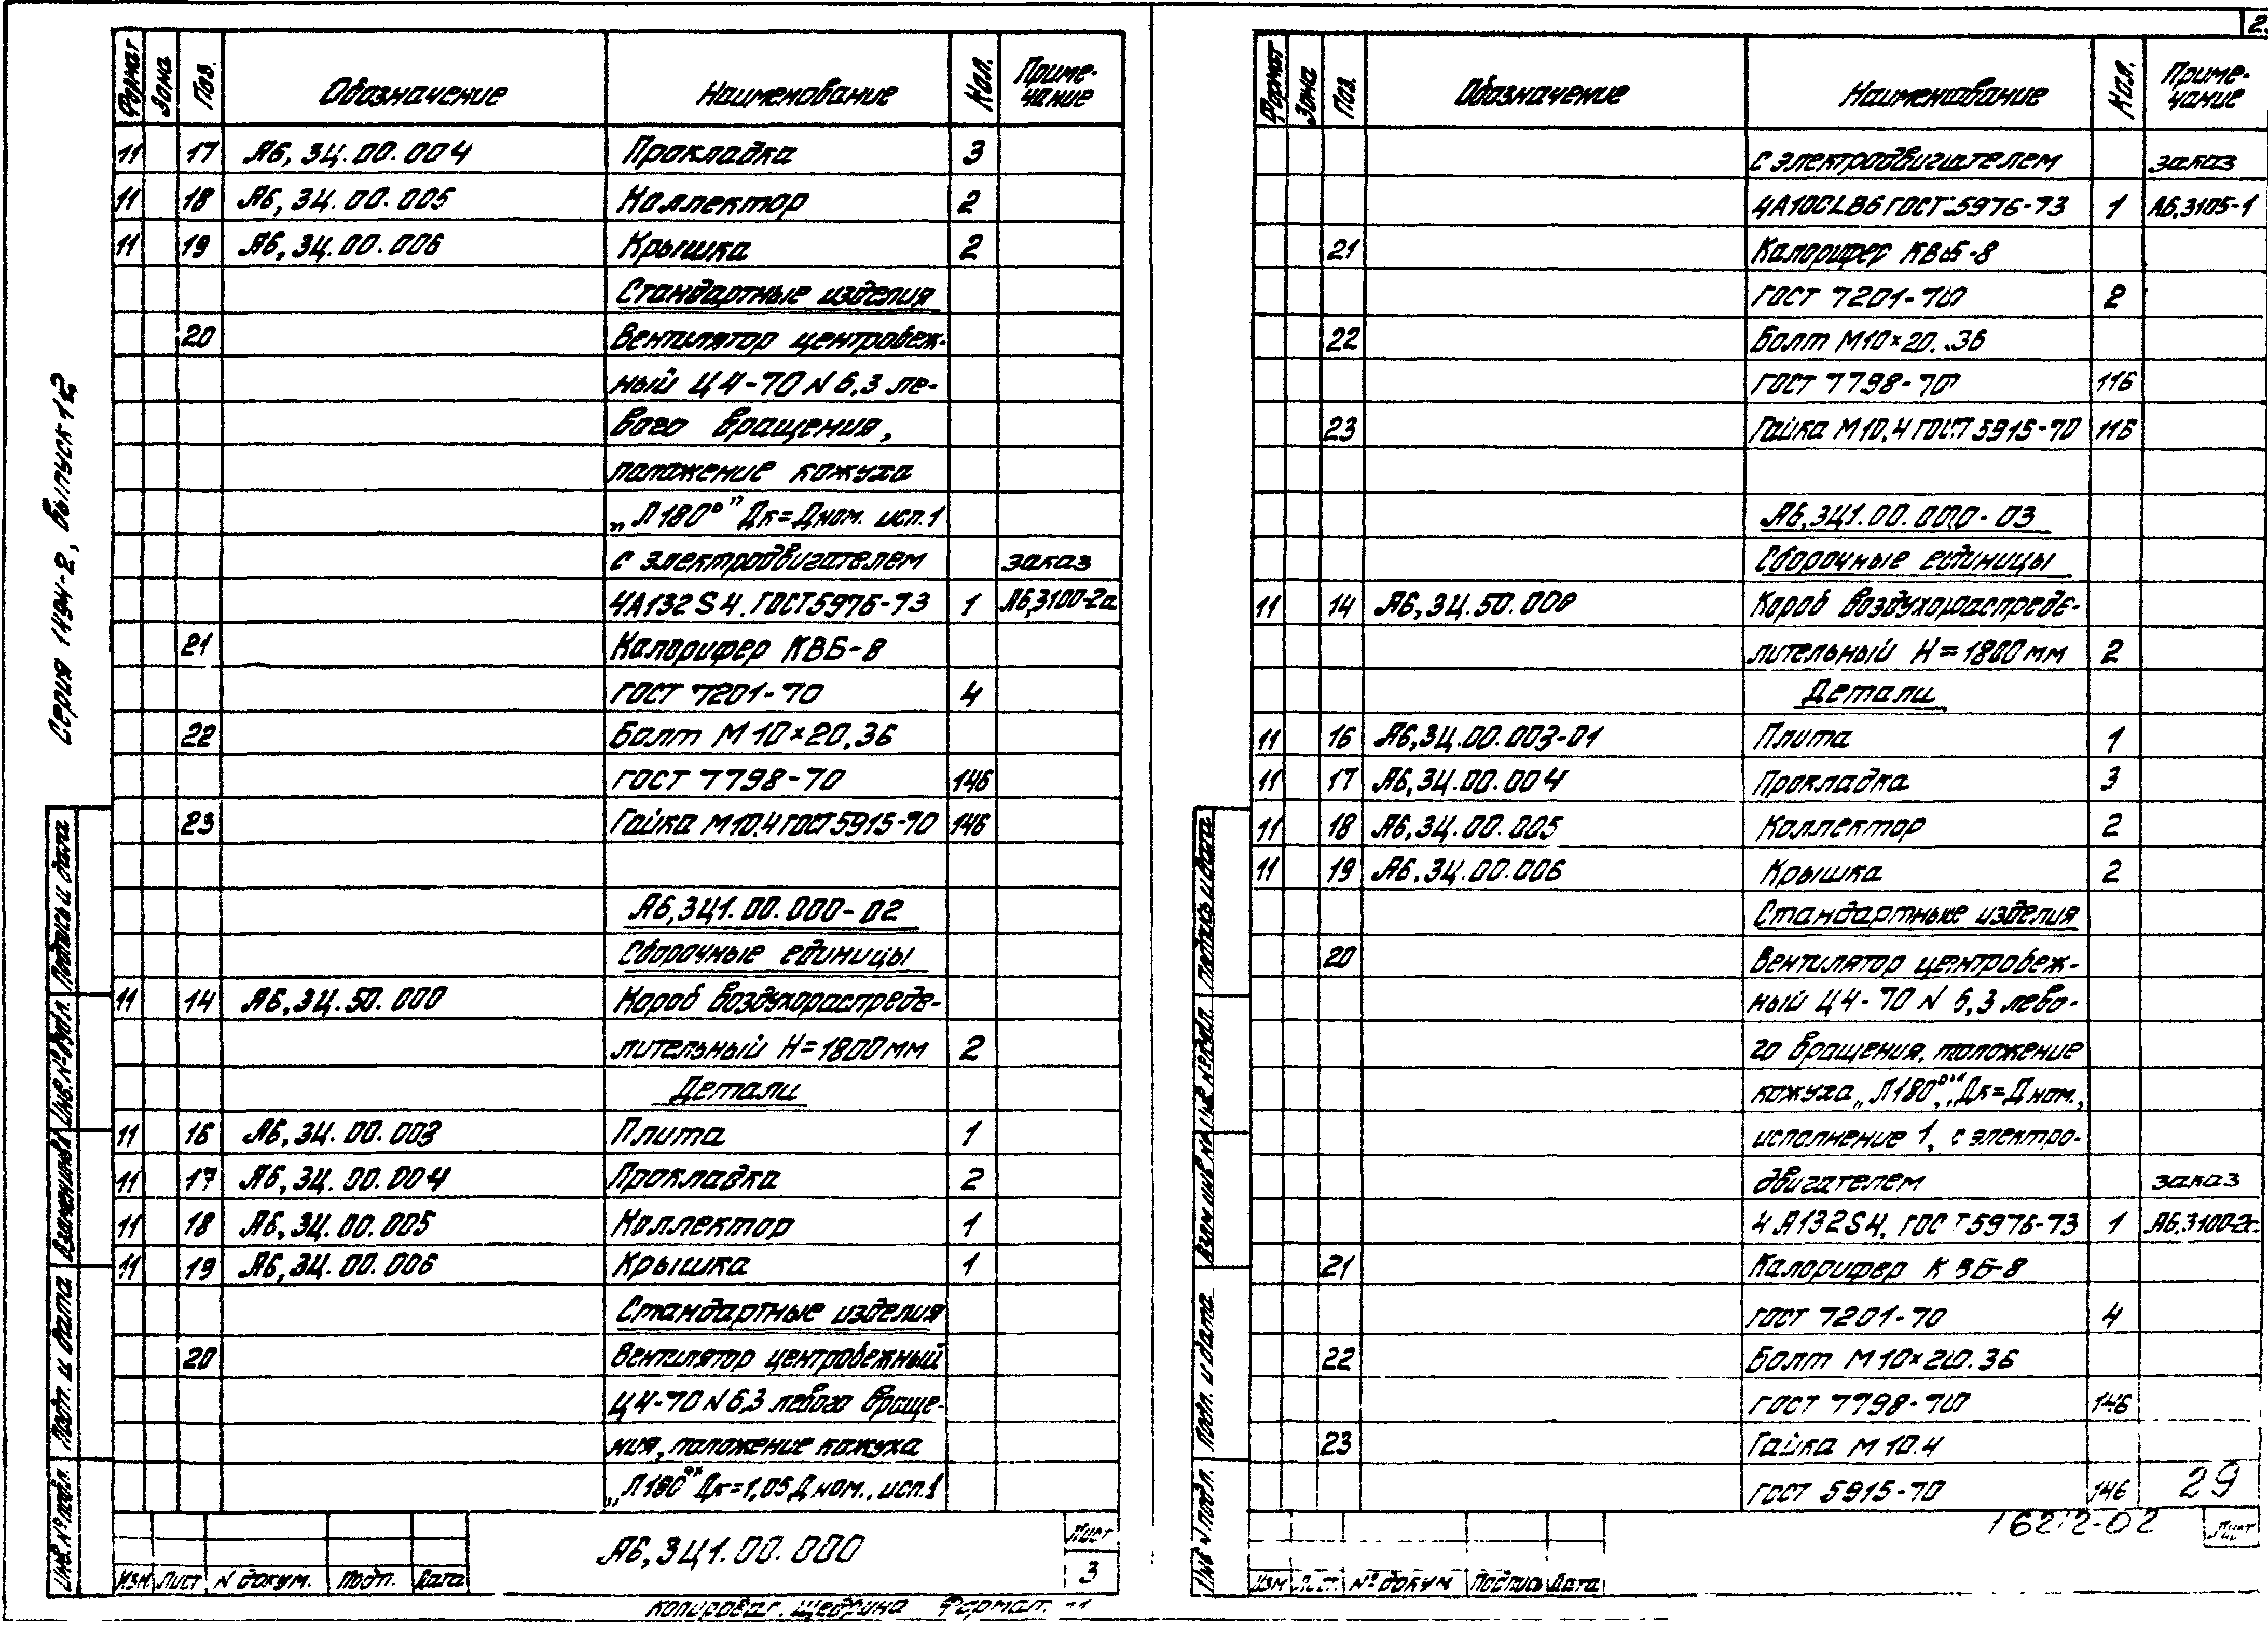 Серия 1.494-2, Выпуск 12
Формат Зона Поз. Обозначение Наименование Кол. Приме-
чание
11 17 А6,3Ц.00.004 Прокладка 3
11 18 А6,3Ц.00.005 Коллектор 2
11 19 А6,3Ц.00.006 Крышка 2
Стандартные изделия
20 Вентилятор центробеж-
ный Ц4-70 N 6,3 ле-
вого вращения,
положение кожуха
„Л180°" Дк=Дном. исп.1
с электродвигателем заказ
4А132S4. ГОСТ 5976-73 1 А6,3100-2а
21 Калорифер КВБ-8
ГОСТ 7201-70 4
22 Болт М10×20,36
ГОСТ 7798-70 146
23 Гайка М10.4 ГОСТ 5915-70 146
А6,3Ц1.00.000-02
Сборочные единицы
11 14 А6,3Ц.50.000 Короб воздухораспреде-
лительный Н=1800мм 2
Детали
11 16 А6,3Ц.00.003 Плита 1
11 17 А6,3Ц.00.004 Прокладка 2
11 18 А6,3Ц.00.005 Коллектор 1
11 19 А6,3Ц.00.006 Крышка 1
Стандартные изделия
20 Вентилятор центробежный
Ц4-70 N 6,3 левого враще-
ния, положение кожуха
„Л180°" Дк=1,05 Дном., исп.1
Инв. № подл. Подп. и дата Взамен инв № Инв. № дубл. Подпись и дата
А6,3Ц1.00.000
Лист
3
Изм Лист N докум. Подп. Дата
Копировал. Щедрина Формат 11
Формат Зона Поз. Обозначение Наименование Кол. Приме-
чание
с электродвигателем заказ
4А100LB6 ГОСТ 5976-73 1 А6,3105-1
21 Калорифер КВБ-8
ГОСТ 7201-70 2
22 Болт М10×20.36
ГОСТ 7798-70 116
23 Гайка М10.4 ГОСТ 5915-70 116
А6,3Ц1.00.000-03
Сборочные единицы
11 14 А6,3Ц.50.000 Короб воздухораспреде-
лительный Н=1800 мм 2
Детали
11 16 А6,3Ц.00.003-01 Плита 1
11 17 А6,3Ц.00.004 Прокладка 3
11 18 А6,3Ц.00.005 Коллектор 2
11 19 А6,3Ц.00.006 Крышка 2
Стандартные изделия
20 Вентилятор центробеж-
ный Ц4-70 N 6,3 лево-
го вращения, положение
кожуха „Л180°", Дк=Дном.,
исполнение 1, с электро-
двигателем заказ
4А132S4, ГОСТ 5976-73 1
21 Калорифер КВБ-8
ГОСТ 7201-70 4
22 Болт М10×20.36
ГОСТ 7798-70 146
23 Гайка М10.4
ГОСТ 5915-70 146
29
Инв № подл. Подп. и дата Взам инв № Инв № дубл. Подпись и дата
Лист
Изм Лист № докум Подпись Дата